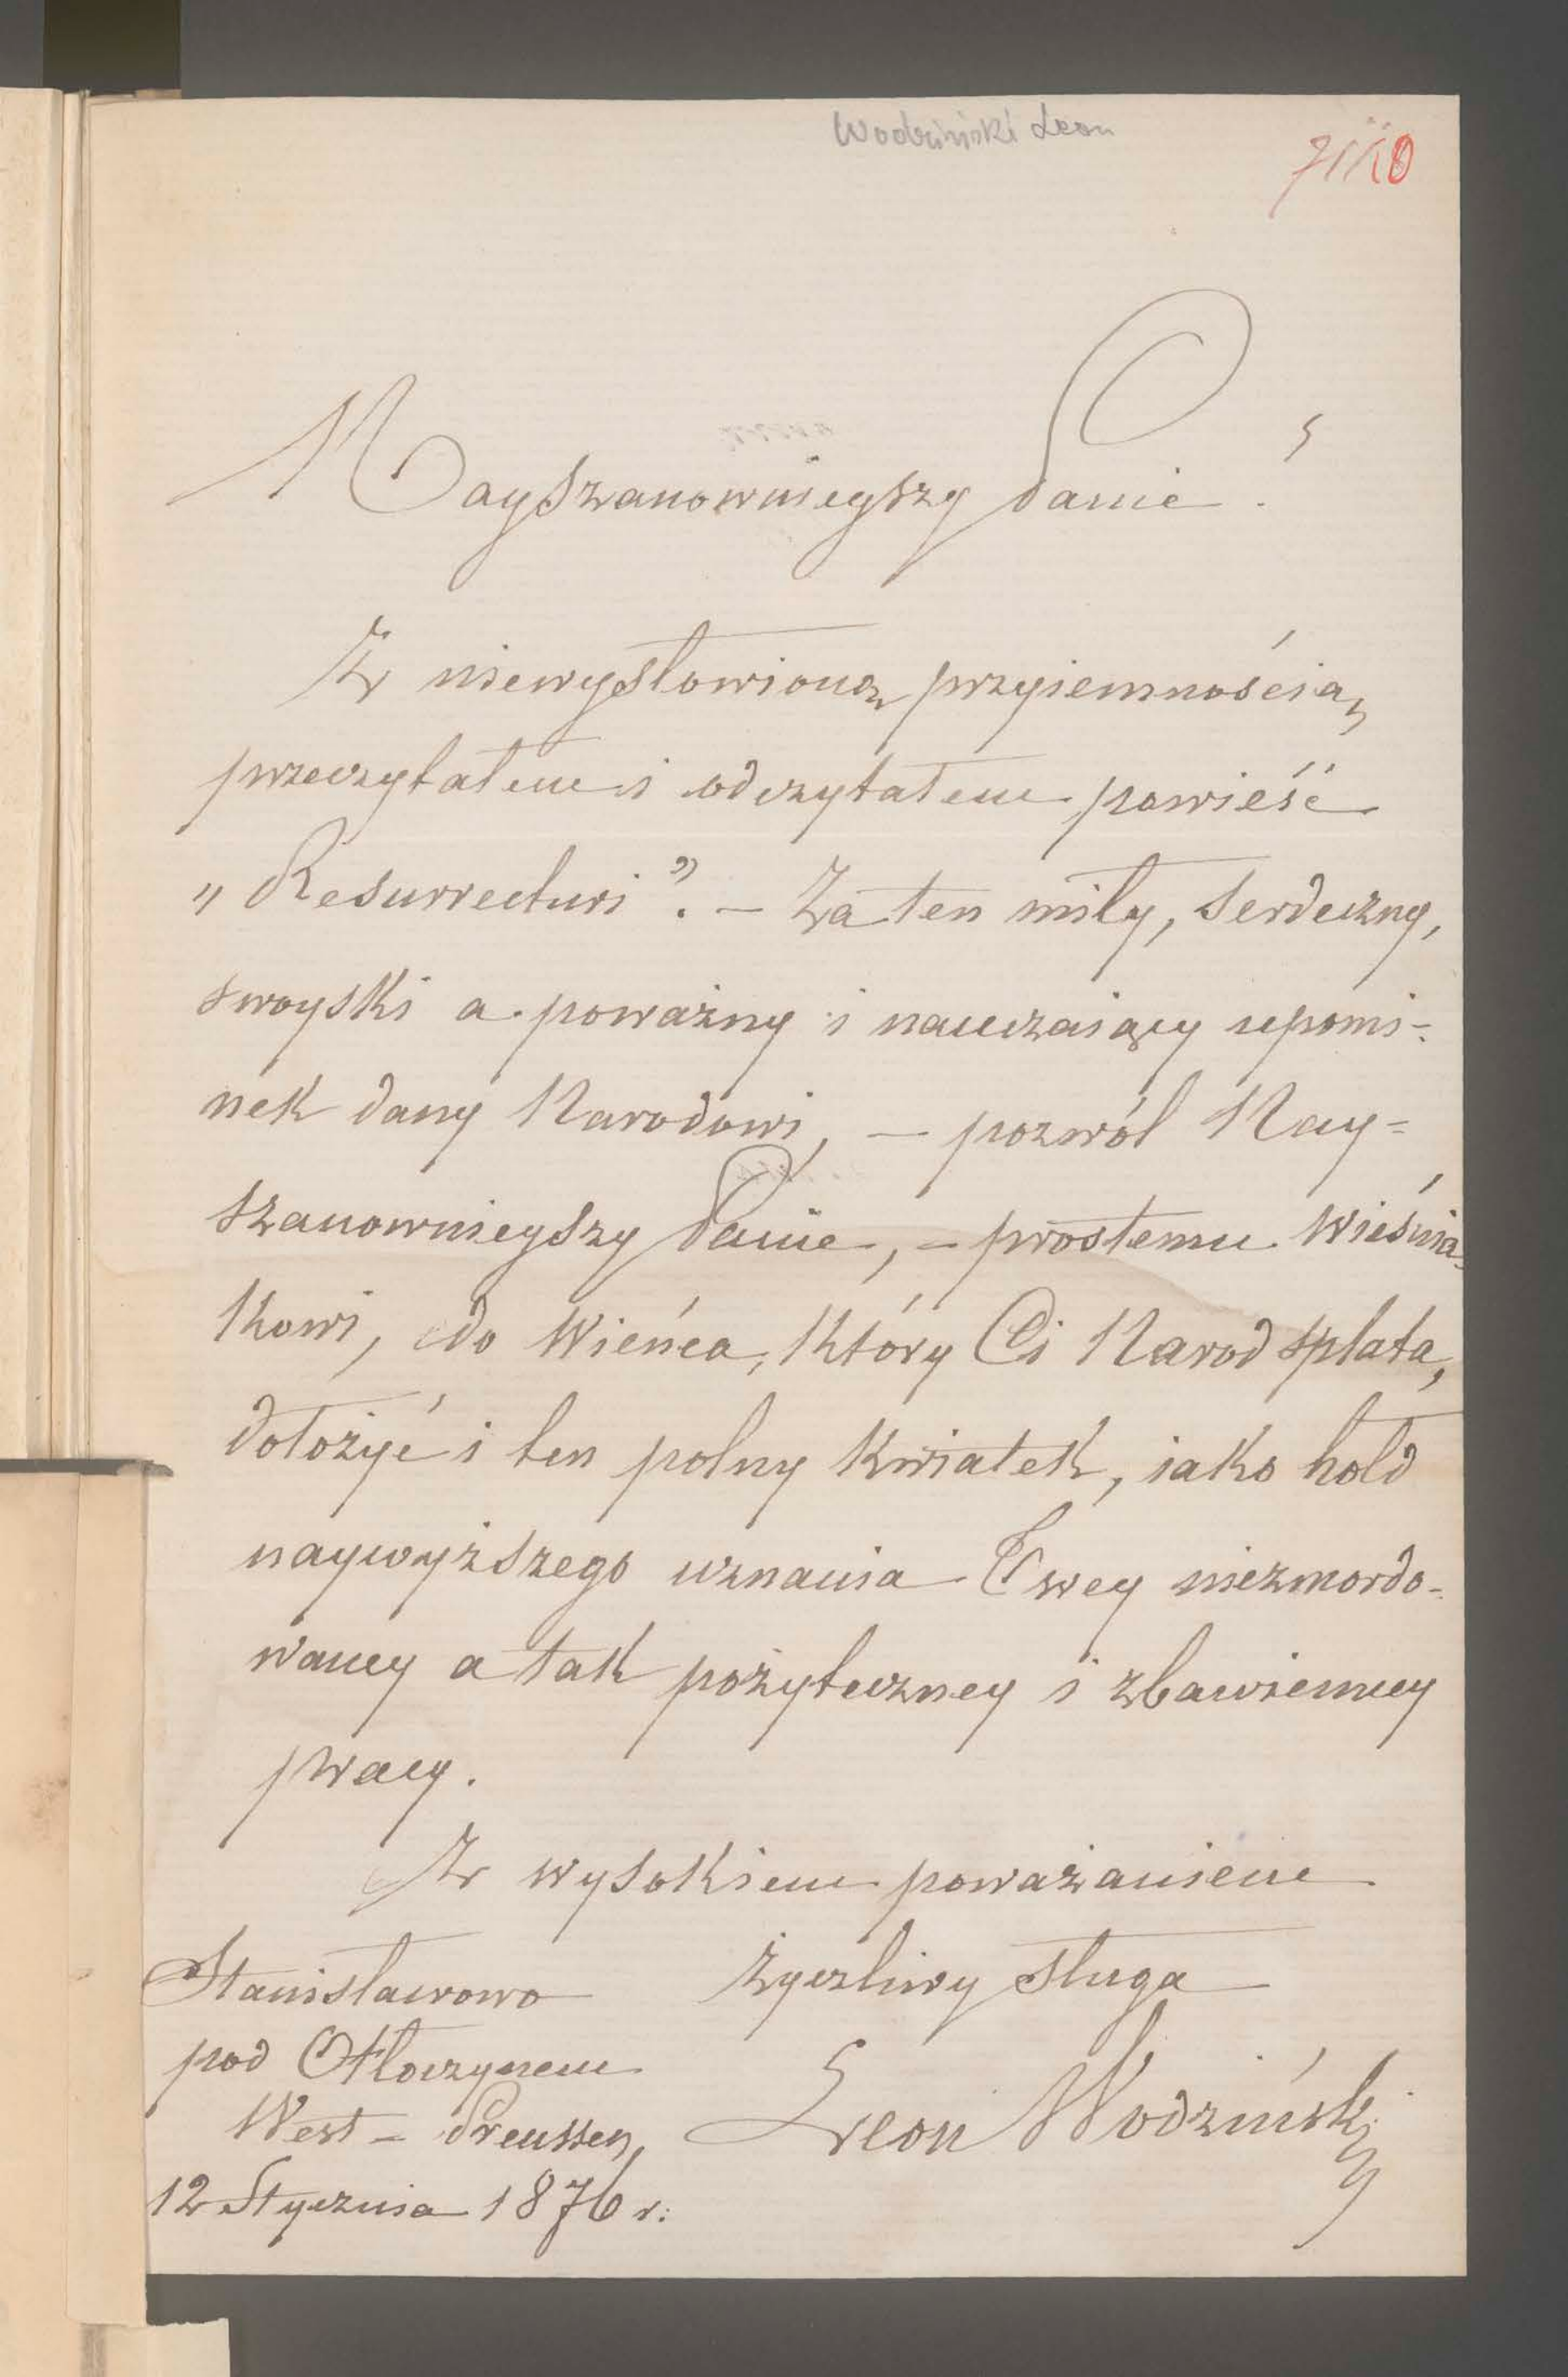 Wodziński Leon
Nayszanownieyszy Panie!
Z niewysłowioną przyiemnością,
przeczytałem i odczytałem powieść
„Resurrecturi”. – Za ten miły, serdeczny,
swoyski a poważny i nauczaiący upomi-
nek dany Narodowi, – pozwól Nay=
szanownieyszy Panie, – prostemu Wieśnia-
kowi, do Wieńca, który Ci Narod splata,
dołożyć i ten polny kwiatek, iako hołd
naywyższego uznania Twey niezmordo-
waney a tak pożyteczney i zbawienney
pracy.
Z wysokiem poważaniem
Życzliwy sługa
Leon Wodziński
Stanisławowo
pod Otłoczynem
West – Preussen,
12 Stycznia 1876 r: